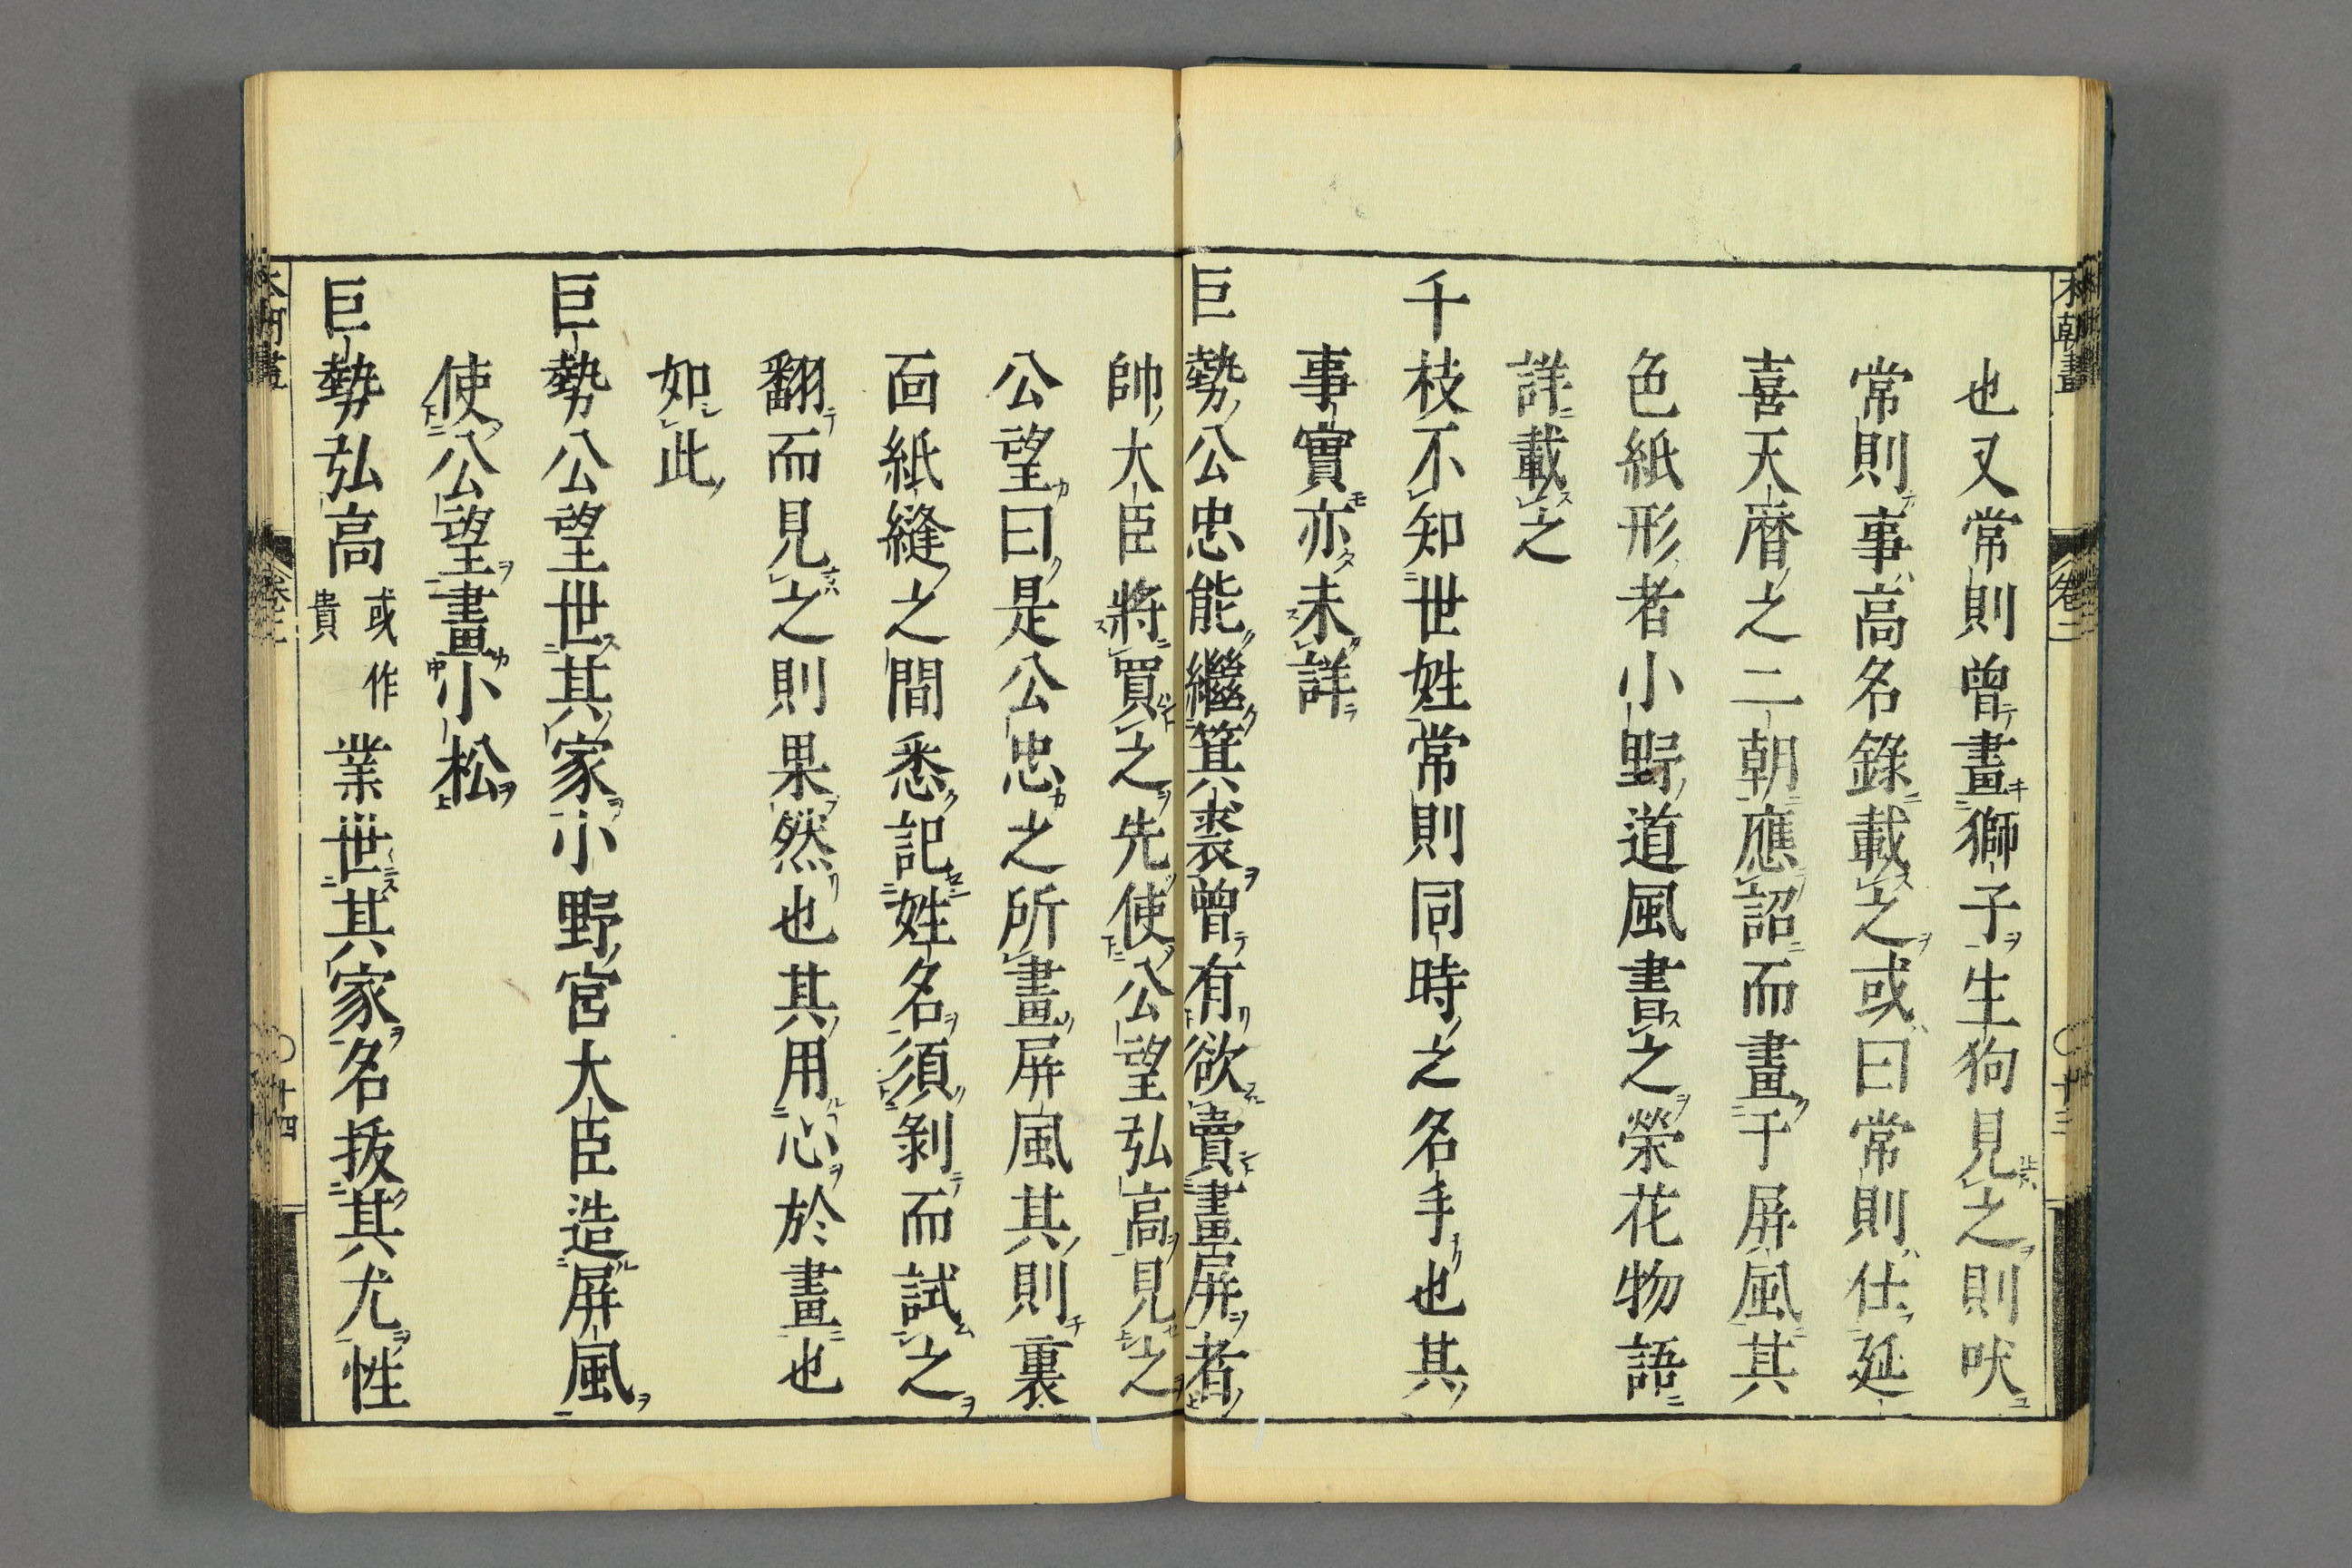 也又常則曽畫獅子生狗見之則吠
常則事高名錄載之或曰常則仕延
喜天暦之二朝應詔而畫于屏風其
色紙形者小野道風書之榮花物語
詳載之
千枝不知世姓常則同時之名手也其
事實亦未詳
巨勢公忠能繼箕裘曽有欲賣畫屏者
帥大臣將買之先使公望弘高見之
公望曰是公忠之所畫屏風其則裏
面紙縫之間悉記姓名須剝而試之
翻而見之則果然也其用心於畫也
如此
巨勢公望世其家小野宮大臣造屏風
使公望畫小松
巨勢弘高或作貴業世其家名拔其尤性
本朝畫
卷二
〇十三
卷二
〇十四